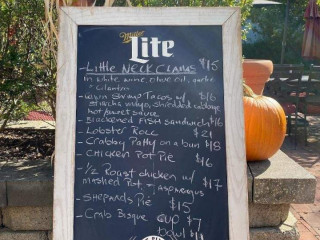 Miller
Lite
- Little Neck Clams $15
in white wine, olive oil, garlic
+ Cilantro
- Cajun Shrimp Tacos w/ $16
sriracha mayo, shredded cabbage
hot peanut sauce
- Blackened Fish Sandwich $16
- Lobster Roll $21
- Crabby Patty on a bun $18
- Chicken Pot Pie $16
- 1/2 Roast chicken w/ $17
mashed Pot, + Asparagus
- Shepards Pie $15
- Crab Bisque cup $7
bowl